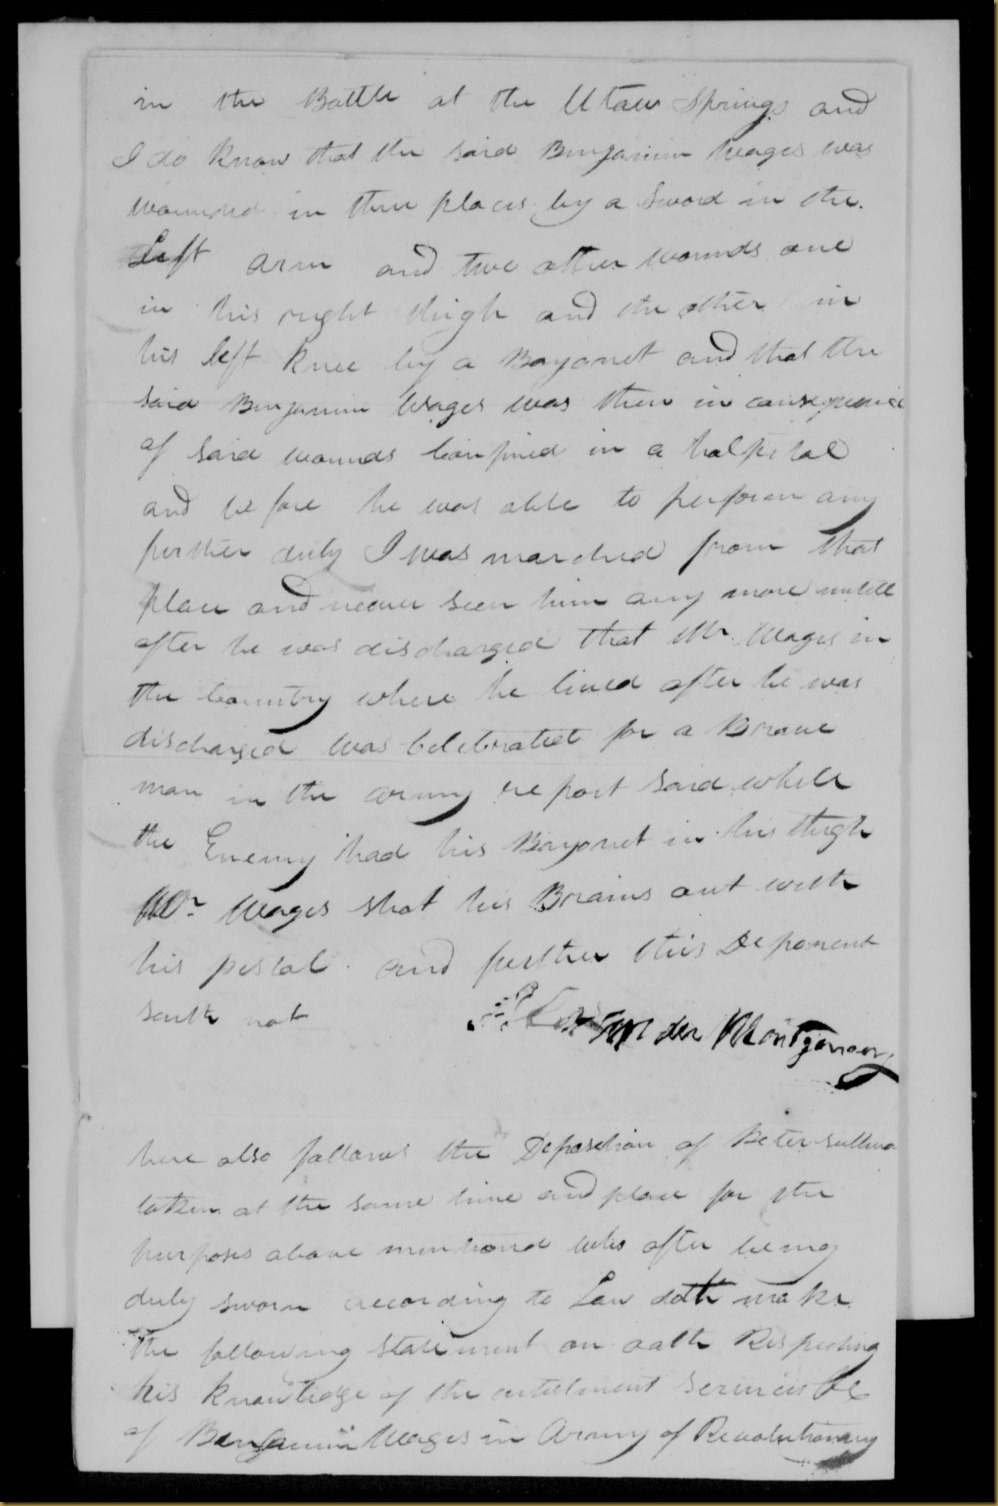 in the Battle at the Utaw Springs and
I do know that the said Benjamin Wages was
wounded in three places by a Sword in the
Left arm and two other wounds one
in his right thigh and the other in
his left knee by a Bayonet and that the
said Benjamin Wages was then in consequence
of said wounds Confined in a holspital
and before he was able to perform any
further duty I was marched from that
place and never seen him any more untill
after he was discharged that Mr. Wages in
the Country where he lived after he was
discharged was Celebrated for a Brave
man in the army report said while
the Enemy had his Bayonet in his thigh
Mr. Wages shot his Brains out with
his pistol. and further this Deponent
seuth not
Montgomery
here also follows the Deposition of Peter Sulliva
taken at the same time and place for the
purposes above mentioned who after being
duly sworn according to Law doth make
the following statement on oath Respecting
his knowledge of the entistment services &c
of Benjamin Wages in Army of Revolutionary